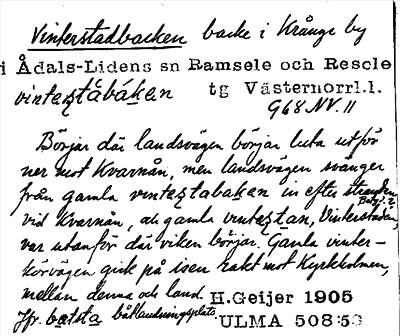 Vinterstadbacken backe i Krånge by
i Ådals-Lidens sn Ramsele och Resele
vintesta̱báken tg Västernorrl.l.
968 NV. 11
Börjar där landsvägen börjar luta utför
ner mot Kvarnån, men landsvägen svänger
från gamla vintestabaken in efter stranden
vid Kvarnån, au gamla vintestan, Vinterstaden,
var utanför där viken börjar. Gamla vinter-
körvägen gick på isen rakt mot Kyrkholmen,
mellan denna och land. H.Geijer 1905
Jfr. batsta båtlandningsplats. ULMA 508:53